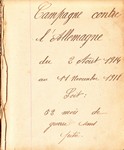 Campagne contre
l'Allemagne
du 2 Août 1914
au 11 Novembre 1918
Soit
52 mois de
guerre